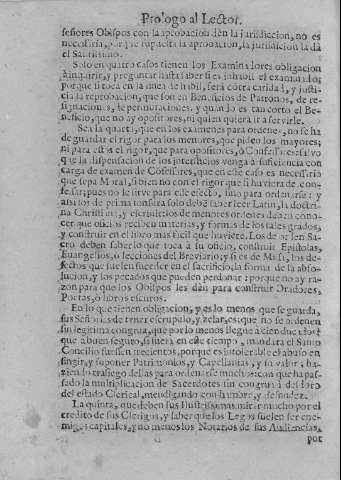 Prologo al Lector.
señores Obispos con la aprobacion dèn la jurisdiccion, no es
necessaria, porque supuesta la aprobacion, la jurisdicion la dà
el Santissimo.
Solo en quatro casos tienen los Examinadores obligacion
à inquirir, y preguntar hasta saber si es inhabil el examinado;
porque si toca en la linea de habil, serà contra caridad, y justi-
cia la reprobacion, que son en Beneficios de Patronos, de re-
signaciones, de permutaciones, y quando es tan corto el Be-
neficio, que no ay opositores, ni quien quiera ir a servirle.
Sea la quarta, que en los examenes para ordenes, no se ha
de guardar el rigor para los menores, que piden los mayores;
ni para estos el rigor, que para opositores, ò Confessores: salvo
que la dispensacion de los intersticios venga à suficiencia con
carga de examen de Cõfessores, que en este caso es necessario
que sepa Moral, si bien no con el rigor que si huviera de con-
fessar, pues no le sirve para este efecto, sino para ordenarse: y
assi los de prima tonsura solo debẽ saber leer Latin, la doctri-
na Christiana, y escrivir: los de menores ordenes deben cono-
cer que oficio reciben materias, y formas de los tales grados,
y construir en el libro mas facil que huviere. Los de orden Sa-
cro deben saber lo que toca à su oficio, construir Epistolas,
Euangelios, ò lecciones del Breviario; y si es de Missa, los de-
fectos que suelen suceder en el sacrificio, la forma de la abso-
lucion, y los pecados que pueden perdonar: porque no ay ra-
zon para que los Obispos les dèn para construir Oradores,
Poetas, ò libros escuros.
En lo que tienen obligacion, y es lo menos que se guarda,
sus Señorias de tener escrupulo, y zelar, es: que no se ordenen
sin legitima congrua, que por lo menos llegue à cien ducados:
que à buen seguro, si fuera en este tiempo, mandara el Santo
Concilio fuessen trecientos, porque es intolerable el abuso en
fingir, y suponer Patrimonios, y Capellanias, y su valor; ha-
zien lo trasiego dellas para ordenarse muchos: con que ha pas-
sado la multiplicacion de Sacerdotes sin congrua à desdoro
del estado Clerical, mendigando con hambre, y desnudez.
La quinta, que deben sus Ilustrissimas mirar mucho por el
credito de sus Clerigos, y saber que los Legos suelen ser ene-
migos capitales, y no menos los Notarios de sus Audiencias,
por